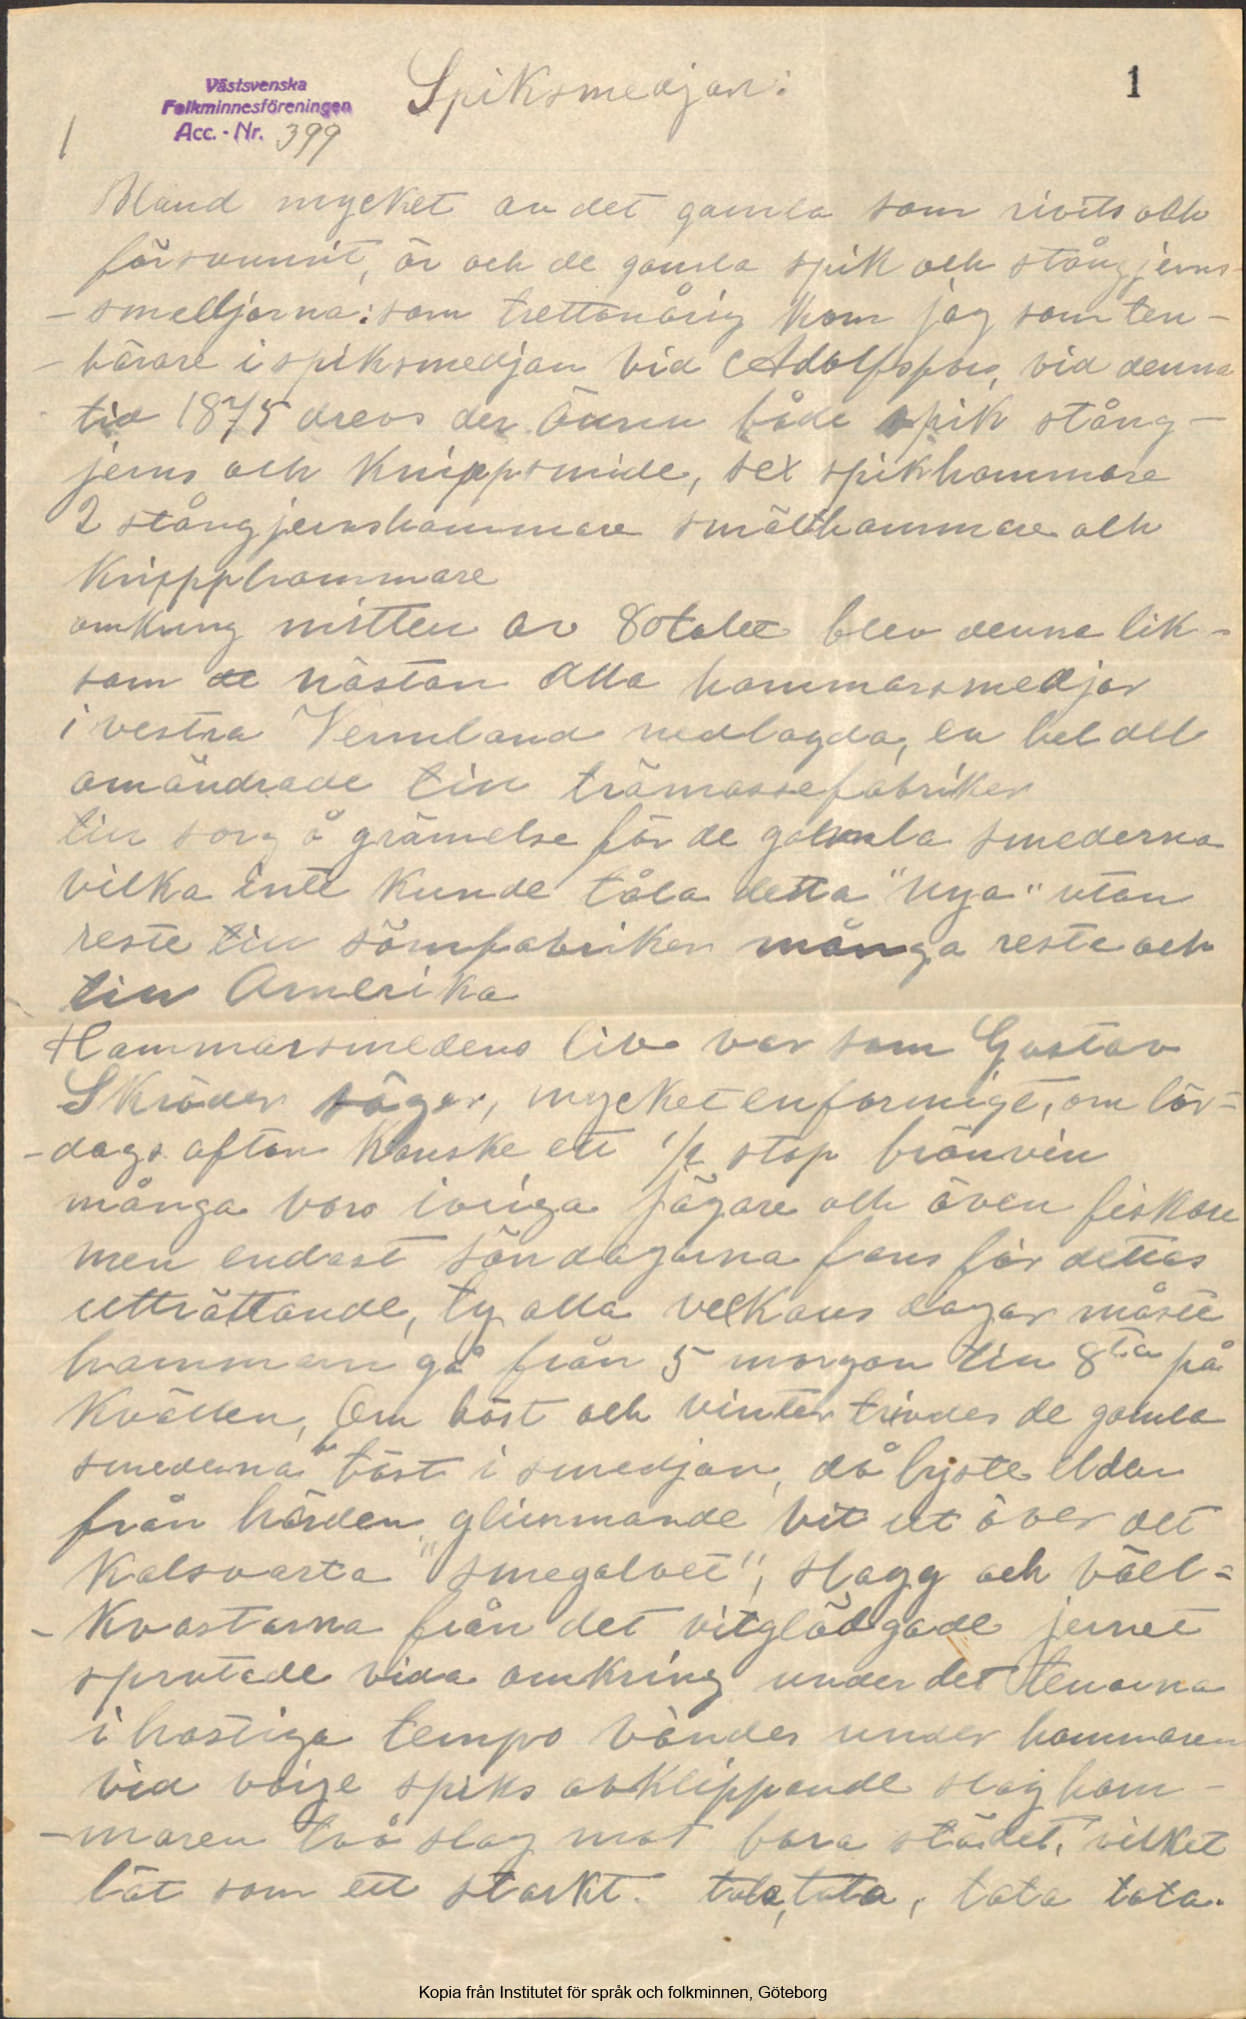 Västsvenska
Folkminnesföreningen
Acc. - Nr. 399
Spiksmedjan:
1
1
Bland mycket av det gamla som rivits och
försvunnit, är och de gamla spik och stångjerns-
- smedjorna: som trettonårig kom jag som ten-
- bärare i spiksmedjan vid Adolfsfors, vid denna
tid 1875 drevs der ännu både spik stång-
jerns och Knippsmide, sex spikhammare
2 stångjernshammare smälthammare och
Knipphammare
omkring mitten av 80talet blev denna lik-
som de nästan alla hammarsmedjor
i vestra Vermland nedlagda, en hel del
omändrade till trämassefabriker
till sorg å grämelse för de gamla smederna
vilka inte kunde tåla detta "nya" utan
reste till sömfabriker många reste och
till Amerika
Hammarsmedens liv var som Gustav
Skröder säger, mycket enformigt, om lör-
- dags afton kanske ett 1/2 stop bränvin
många voro ivriga jägare och även fiskare
men endast söndagarna fans för dettas
utträttande, ty alla veckans dagar måste
hammarn gå från 5 morgon till 8ta på
Kvällen, Om höst och vinter trivdes de gamla
smederna bäst i smedjan, då lyste elden
från härden glimmande vit ut över det
Kolsvarta "smegolvet", slagg och väll-
- Kvastarna från det vitglödgade jernet
sprutade vida omkring under det tenarna
i hastiga tempo vändes under hammaren
vid varje spiks avklippande slog ham-
- maren två slag mot bara städet, vilket
lät som ett starkt. tata, tata, tata tata.
Kopia från Institutet för språk och folkminnen, Göteborg